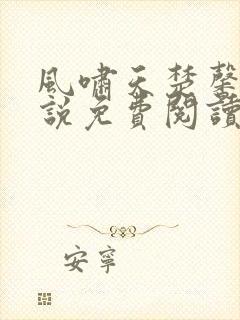 風嘯天楚馨
說免費閱讀
安寧